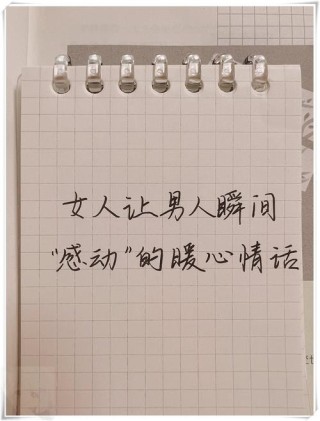 女人让男人瞬间
“感动”的暖心情话